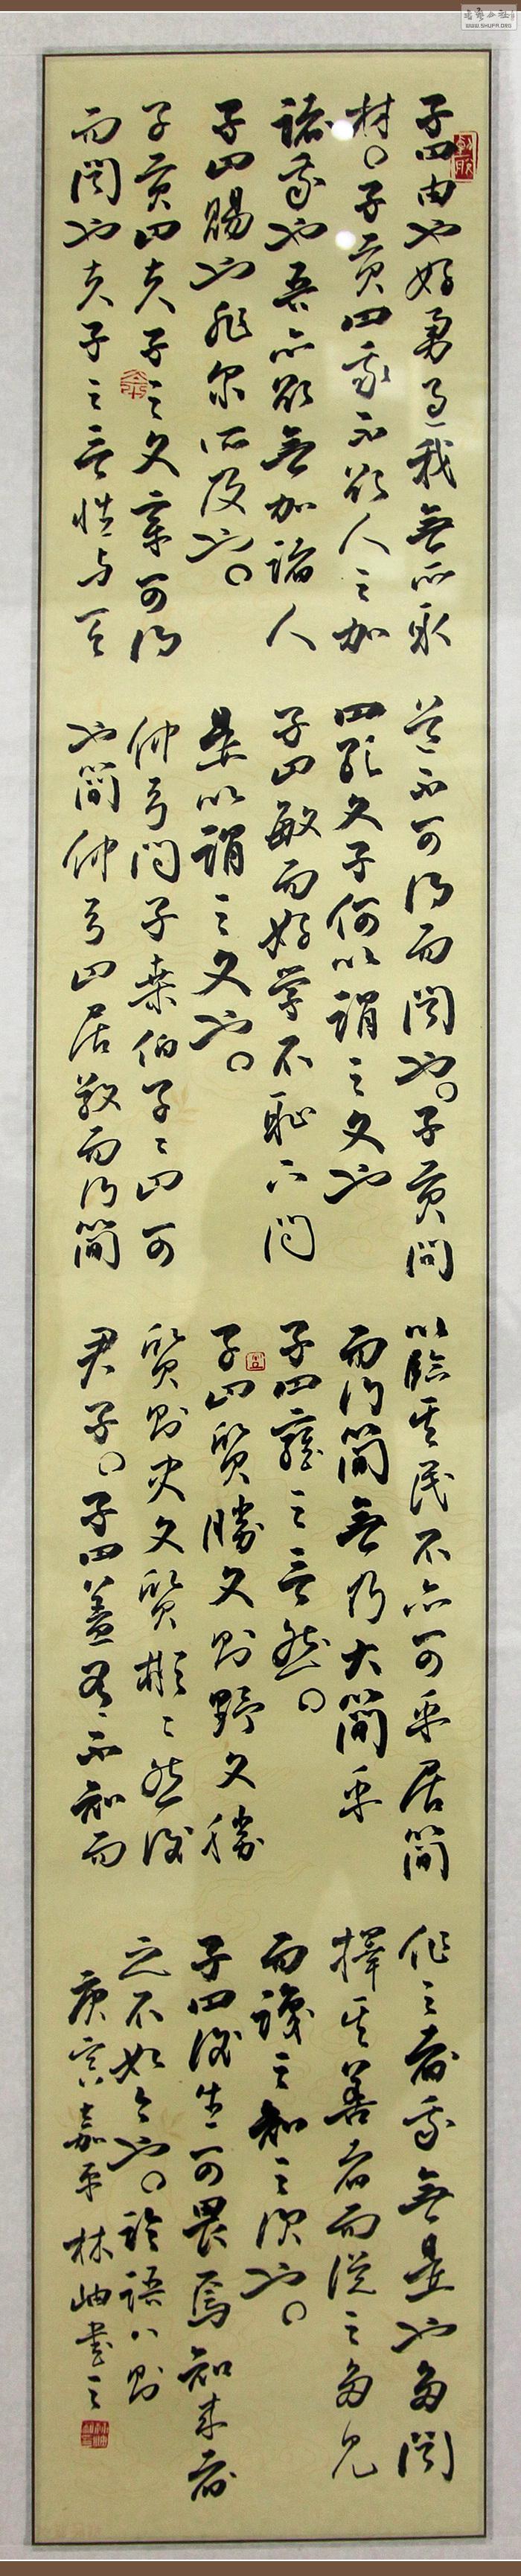 子曰由也好勇過我無所取
材。子貢曰我不欲人之加
諸我也吾亦欲無加諸人
子曰賜也非尔所及也。
子貢曰夫子之文章可得
而聞也夫子之言性与天
道不可得而聞也。子貢問
曰孔文子何以謂之文也
子曰敏而好學不恥下問
是以謂之文也。
仲弓問子桑伯子〻曰可
也簡仲弓曰居敬而行簡
以臨其民不亦可乎居簡
而行簡無乃大簡乎
子曰雍之言然。
子曰質勝文則野文勝
質則史文質彬〻然後
君子。子曰蓋有不知而
作之者我無是也多聞
擇其善者而從之多見
而識之知之次也。
子曰後生可畏焉知来者
之不如今也。論語八則
庚寅嘉平林岫書之
WWW.SHUFA.ORG